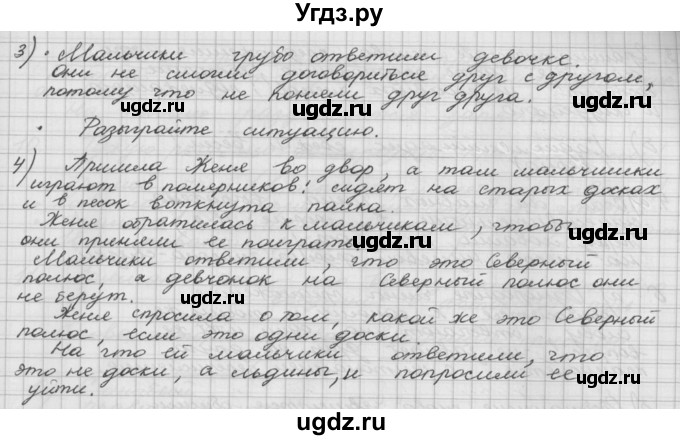 Угдз.ру
3) • Мальчики грубо ответили девочке.
Они не смогли договориться друг с другом,
потому что не поняли друг друга.
• Разыграйте ситуацию.
4) Пришла Женя во двор, а там мальчишки
играют в полярников: сидят на старых досках
и в песок воткнута палка.
Женя обратилась к мальчикам, чтобы
они приняли ее поиграть.
Мальчики ответили, что это Северный
полюс, а девчонок на Северный полюс они
не берут.
Женя спросила о том, какой же это Северный
полюс, если это одни доски.
На что ей мальчики ответили, что
это не доски, а льдины, и попросили ее
уйти.
uгдз.ru